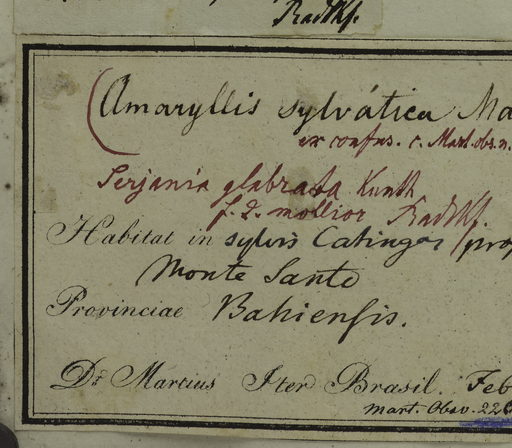 Radlkf.
(Amaryllis sylvática Ma
ex confus. c. Mart. obs. n.
Serjania glabrata Kunth
f. 2. mollior Radlkf.
Habitat in sylvis Catingas prop
Monte Santo
Provinciae Bahiensis.
Dr. Martius Iter Brasil. Feb
Mart. Obsv. 220